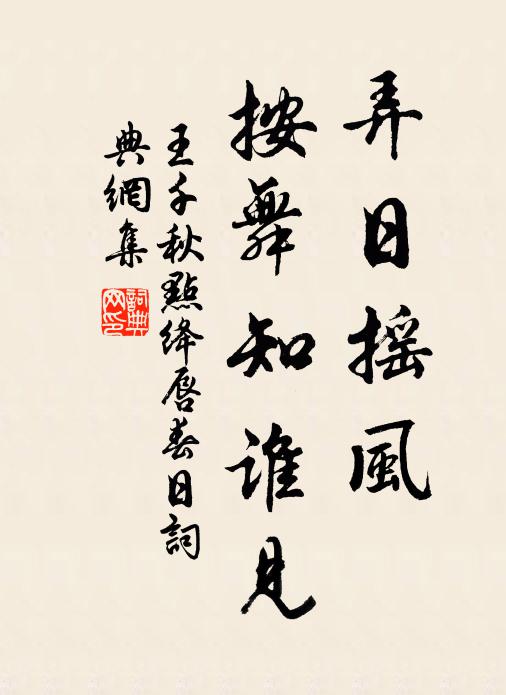 弄日摇風
按舞知誰見
王千秋點绛唇春日詞
典網集
詞典网印